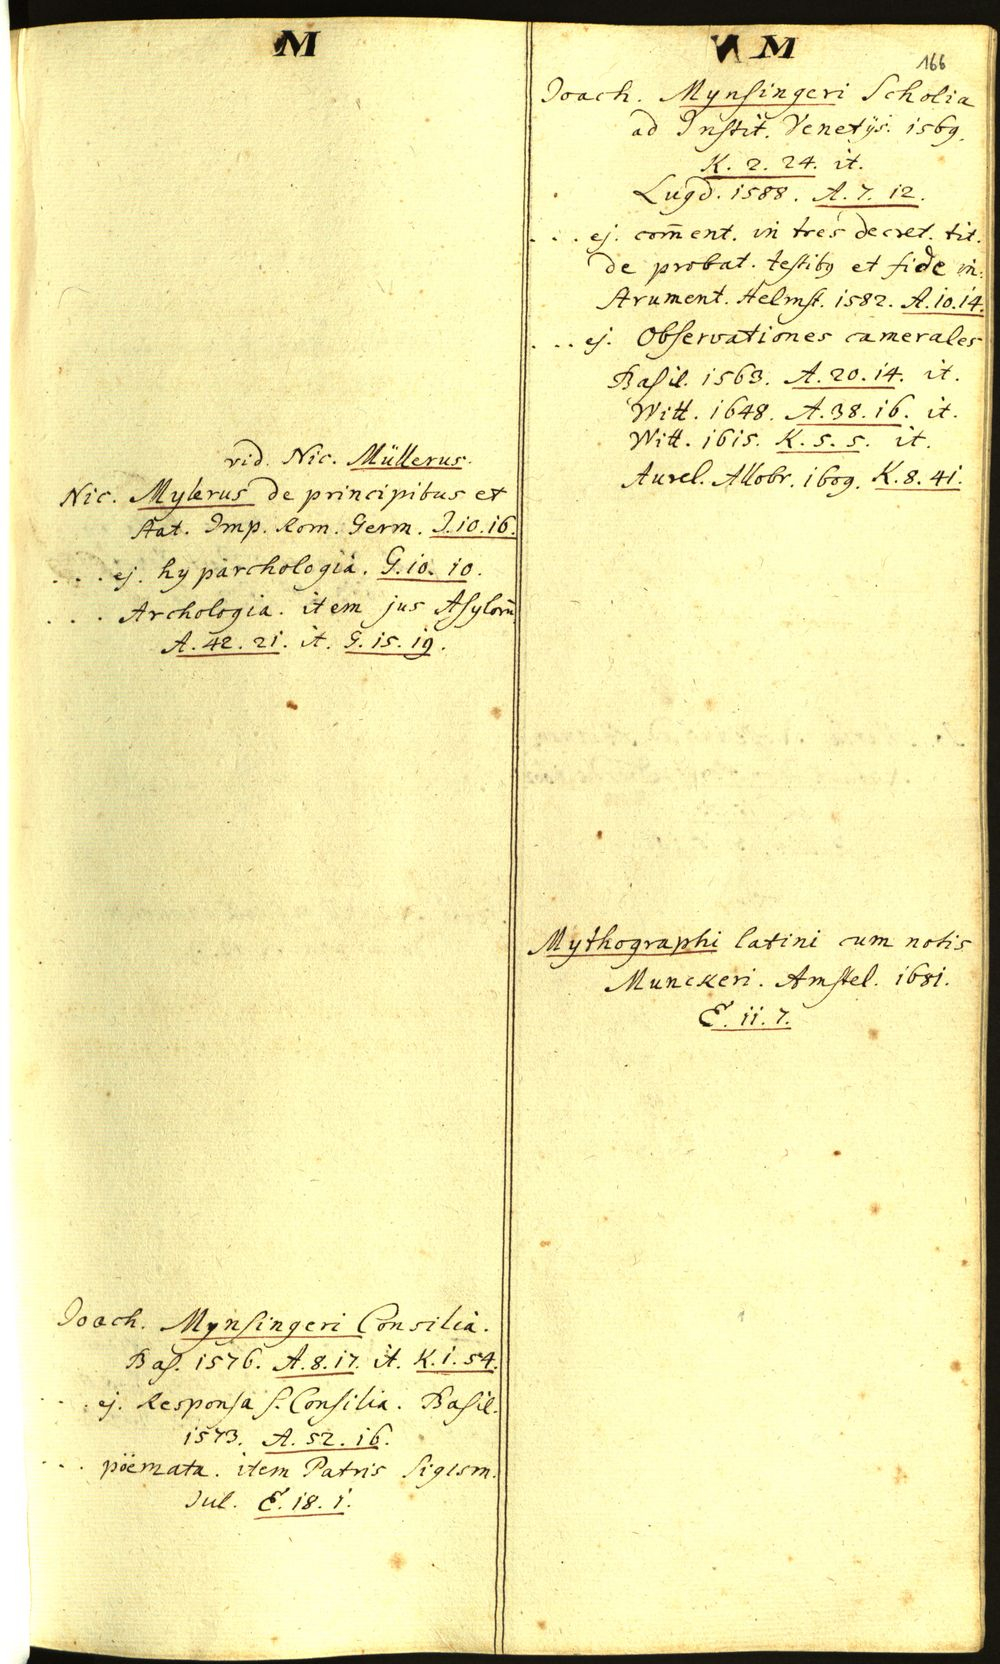 M
vid. Nic. Müllerus.
Nic. Mylerus de principibus et
stat. Imp. Rom. Germ. J.10.16.
. . . ej. hyparchologia. G.10.10.
. . . Archologia. item jus Asylorū
A.42.21. it. G.15.19.
Joach. Mynsingeri Consilia.
Bas. 1576. A.8.17. it. K.1.54.
. . . ej. Responsa s. Consilia. Basil.
1573. A.52.16.
. . . pöemata. item Patris Sigism.
Jul. E.18.1.
M
166
Joach. Mynsingeri Scholia
ad Instit. Venetijs. 1569.
K.2.24. it.
Lugd. 1588. A.7.12.
. . . ej. com̄ent. in tres decret. tit.
de probat. testibꝰ et fide in-
strument. Helmst. 1582. A.10.14.
. . . ej. Observationes camerales
Basil. 1563. A.20.14. it.
Witt. 1648. A.38.16. it.
Witt. 1615. K.5.5. it.
Aurel. Allobr. 1609. K.8.41.
Mythographi latini cum notis
Munckeri. Amstel. 1681.
E.11.7.